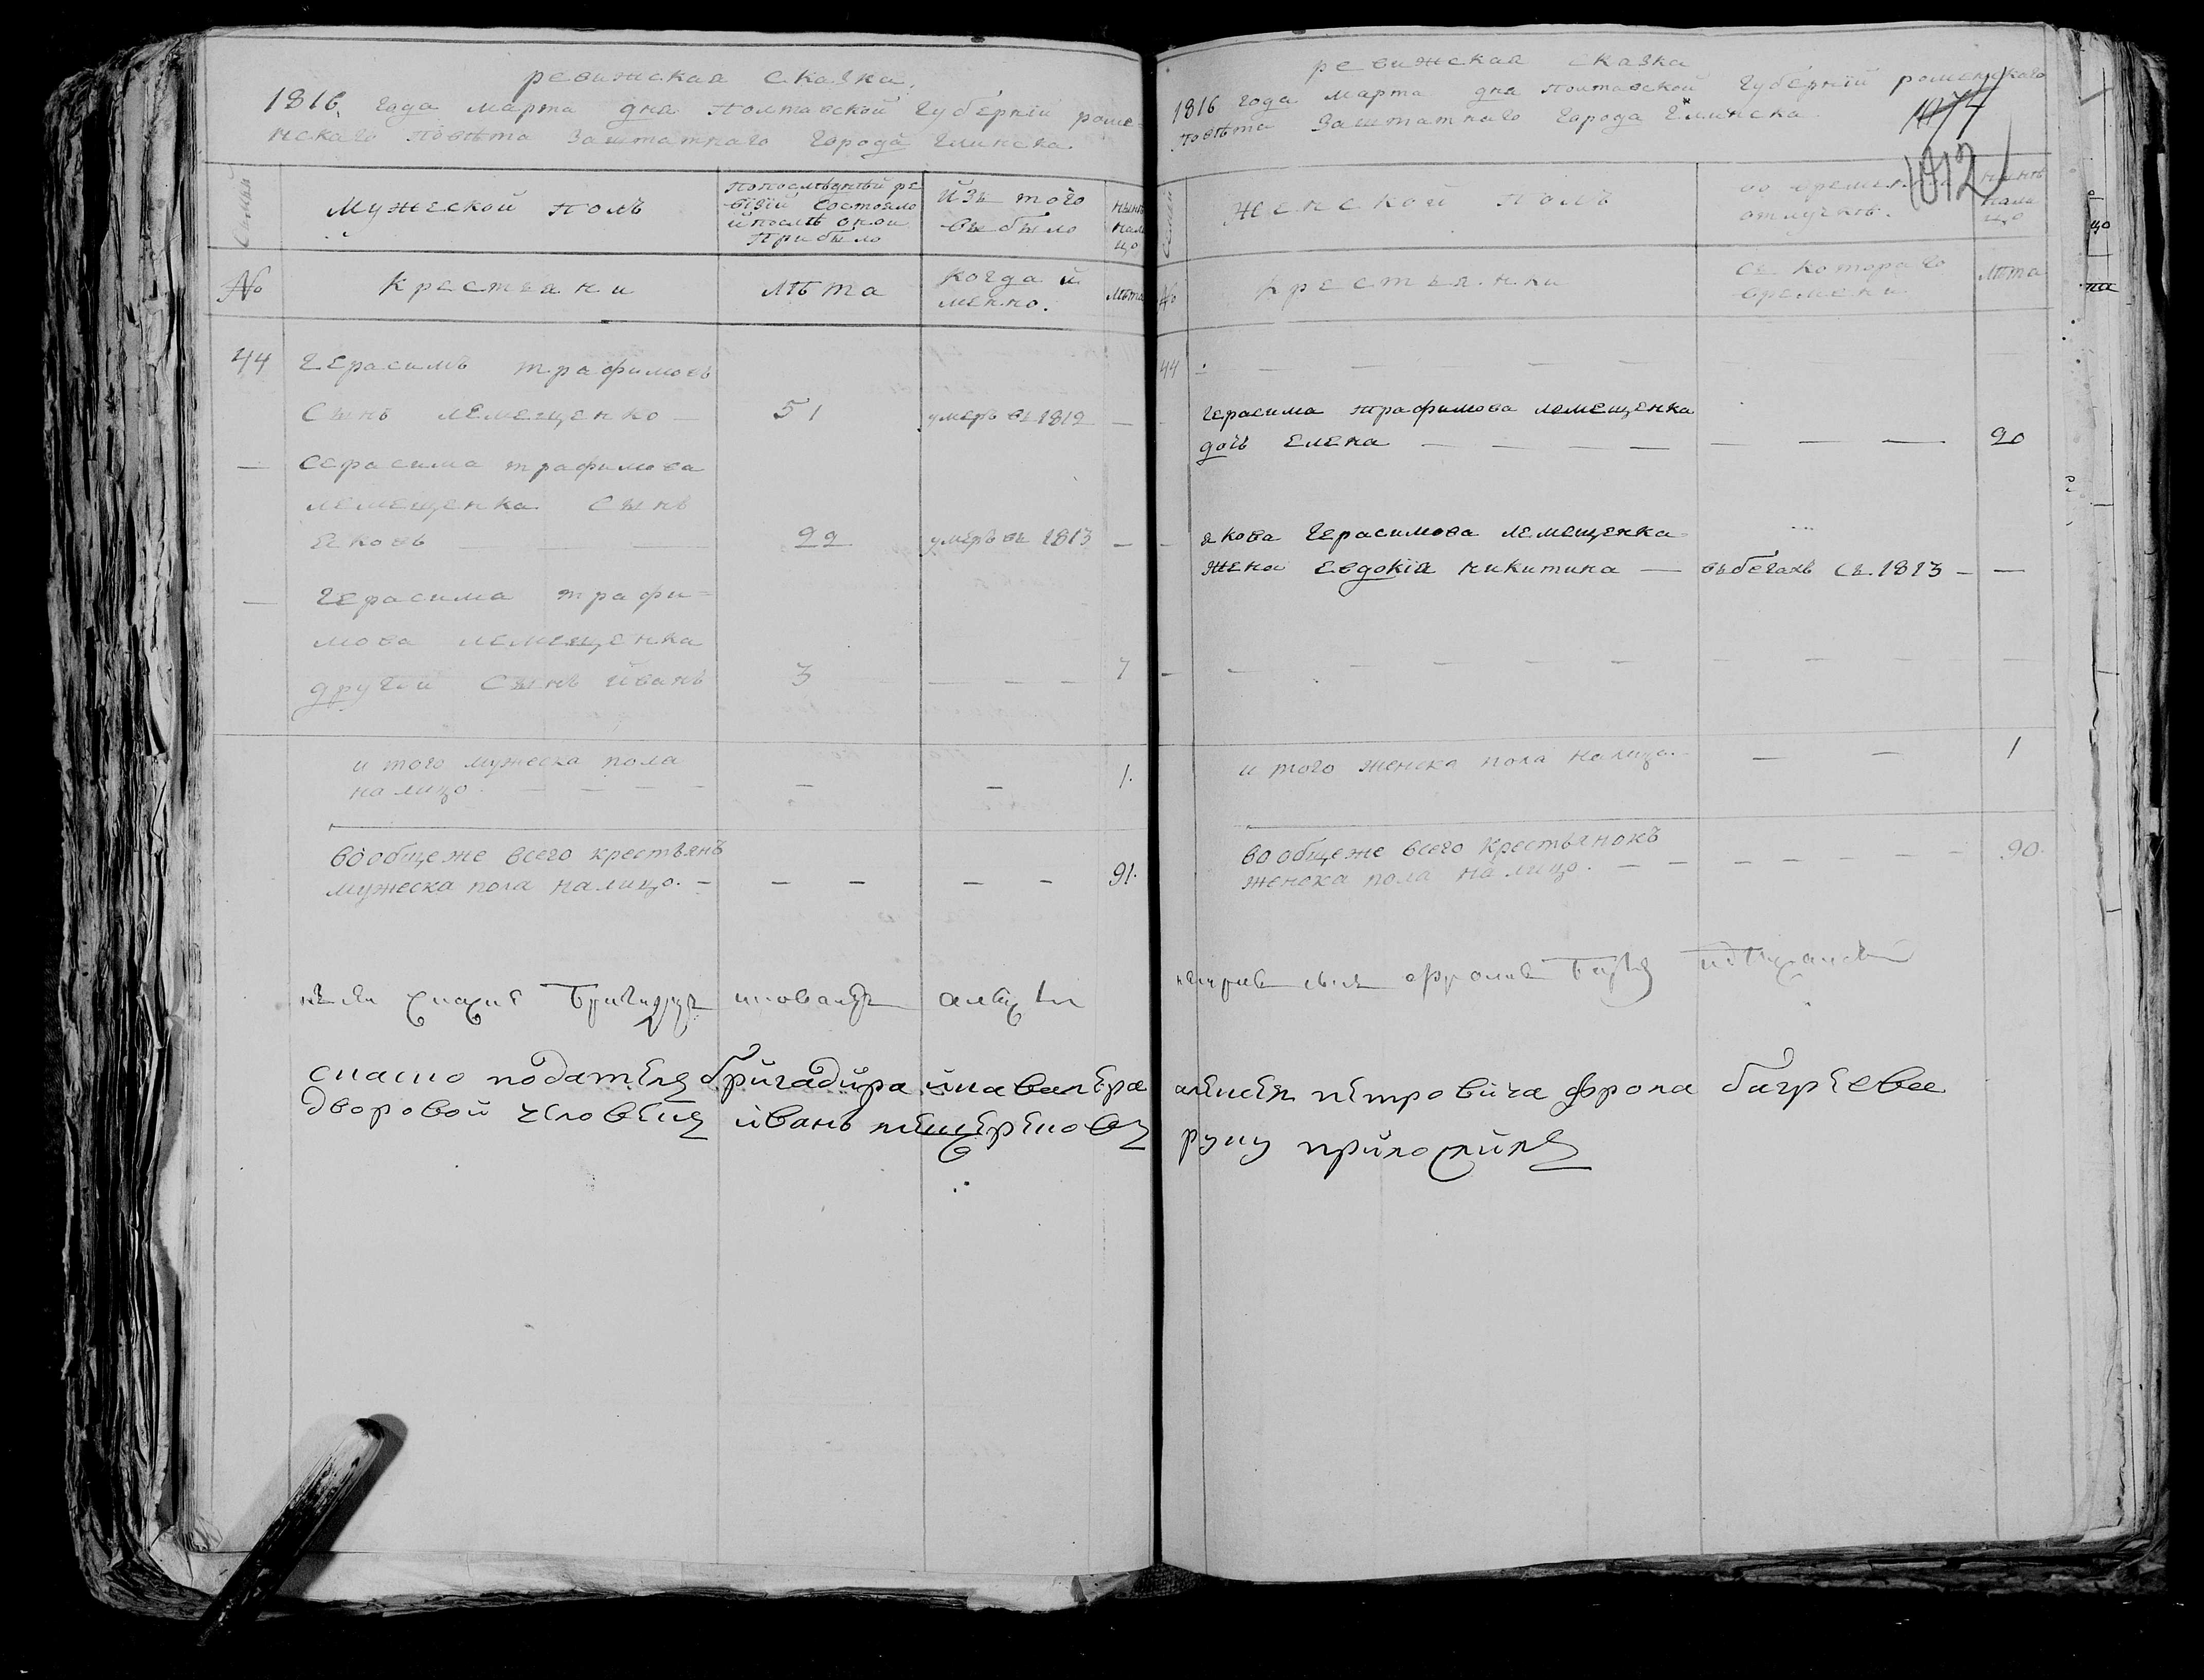 ревижская сказка.
1816 года марта дня Полтавской Губернїи роме-
нскаго повѣта Заштатнаго города Глинска.
Семьи
Мужеской полъ
попослѣдней ре
визїи состояло
и послѣ онои
прибыло
Изъ того
выбыло
нынѣ
нали
цо
№
крестьяни
лѣта
когда и
менно.
лѣта
44 Герасимъ трафимовъ
сынъ лемещенко — 51 умеръ въ 1812 —
— Герасима трафимова
лемещенка сынъ
Яковъ — 22 умеръ въ 1813 —
— Герасима трафи=
мова лемещенка
другои сынъ Иванъ 3 — — — 7
и того мужеска пола
налицо. — — — — — — 1.
вообще же всего крестьянъ
мужеска пола налицо. — — — — — 91.
спасно подателя бригадира икавалера
дворовой человекъ иванъ
ревижская сказка
1816 года марта дня полтавской Губернїй роменскаго
повѣта Заштатнаго города Глинска.
1074
1012
Семьи
Женской полъ
во времен.
отлучкѣ.
нынѣ
нали
цо
№
крестьянки
съ котораго
времени
лѣта
44 — — — — — — — —
Герасима трафимова лемещенка
дочь Елена — — — — — — — 20
Якова Герасимова лемещенка
жена Евдокїя никитина — въбегахъ съ 1813 — —
— — — — — — — — — —
и того женска пола налицо. — — 1
вообще же всего крестьянокъ
женска пола налицо. — — — — — — — 90.
алексея петровича фрола багреева
руку приложилъ